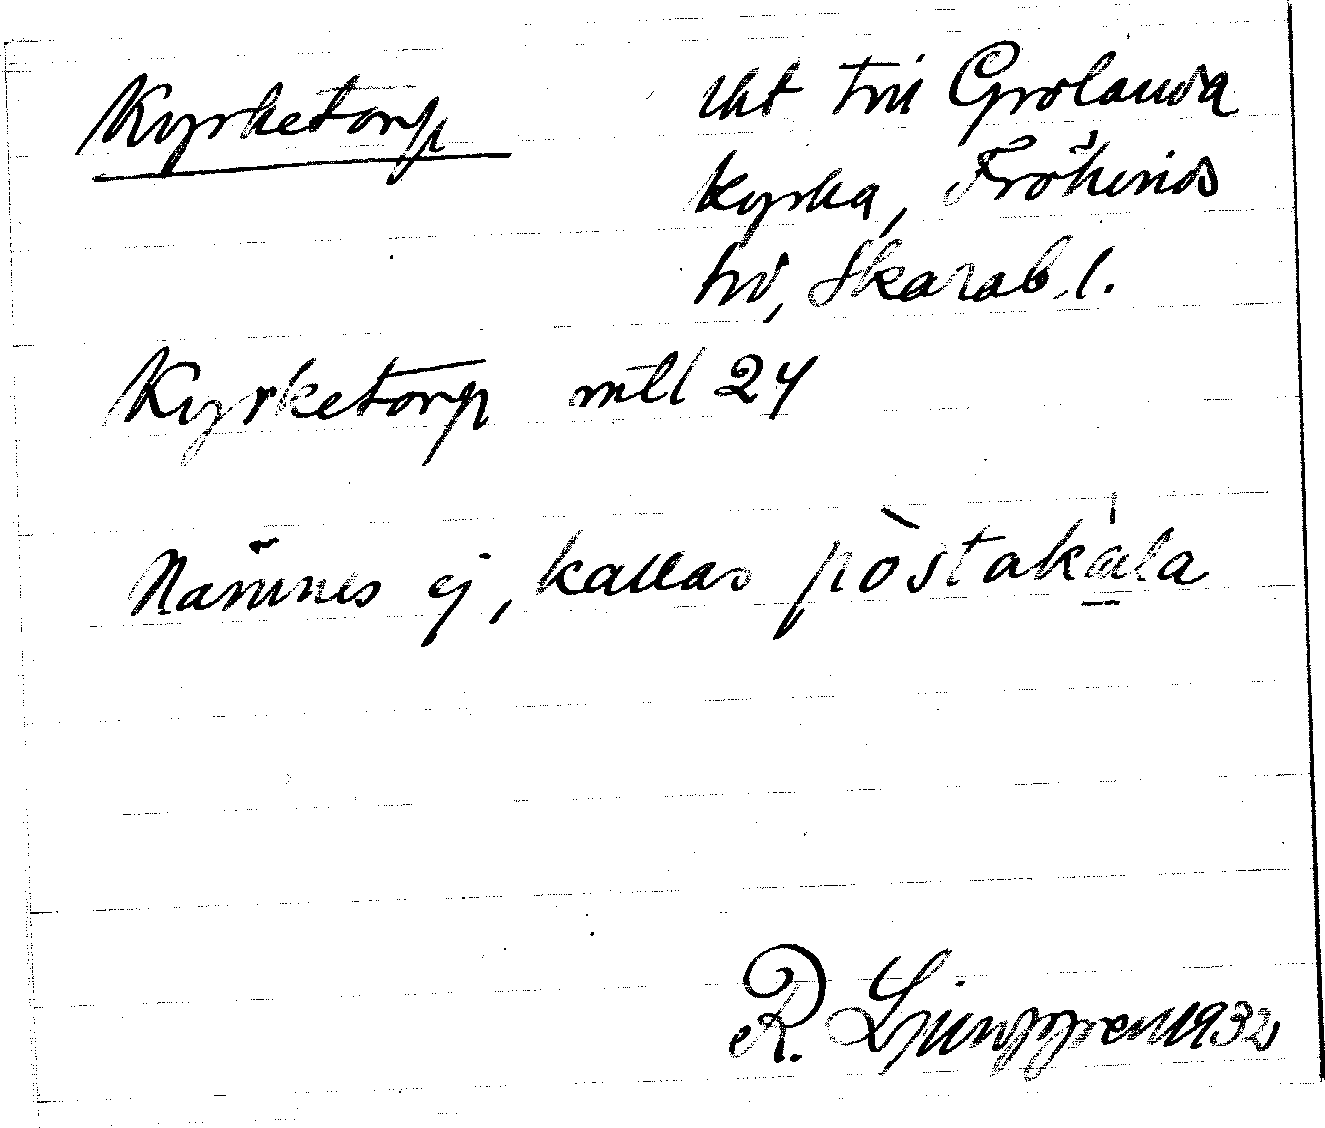 Kyrketorp
tht till Grolanda
kyrka, Frökinds
hd, Skarab. l.
Kyrketorp mtl 24
Nämnes ej, kallas pòstakála
R. Ljunggren 1932